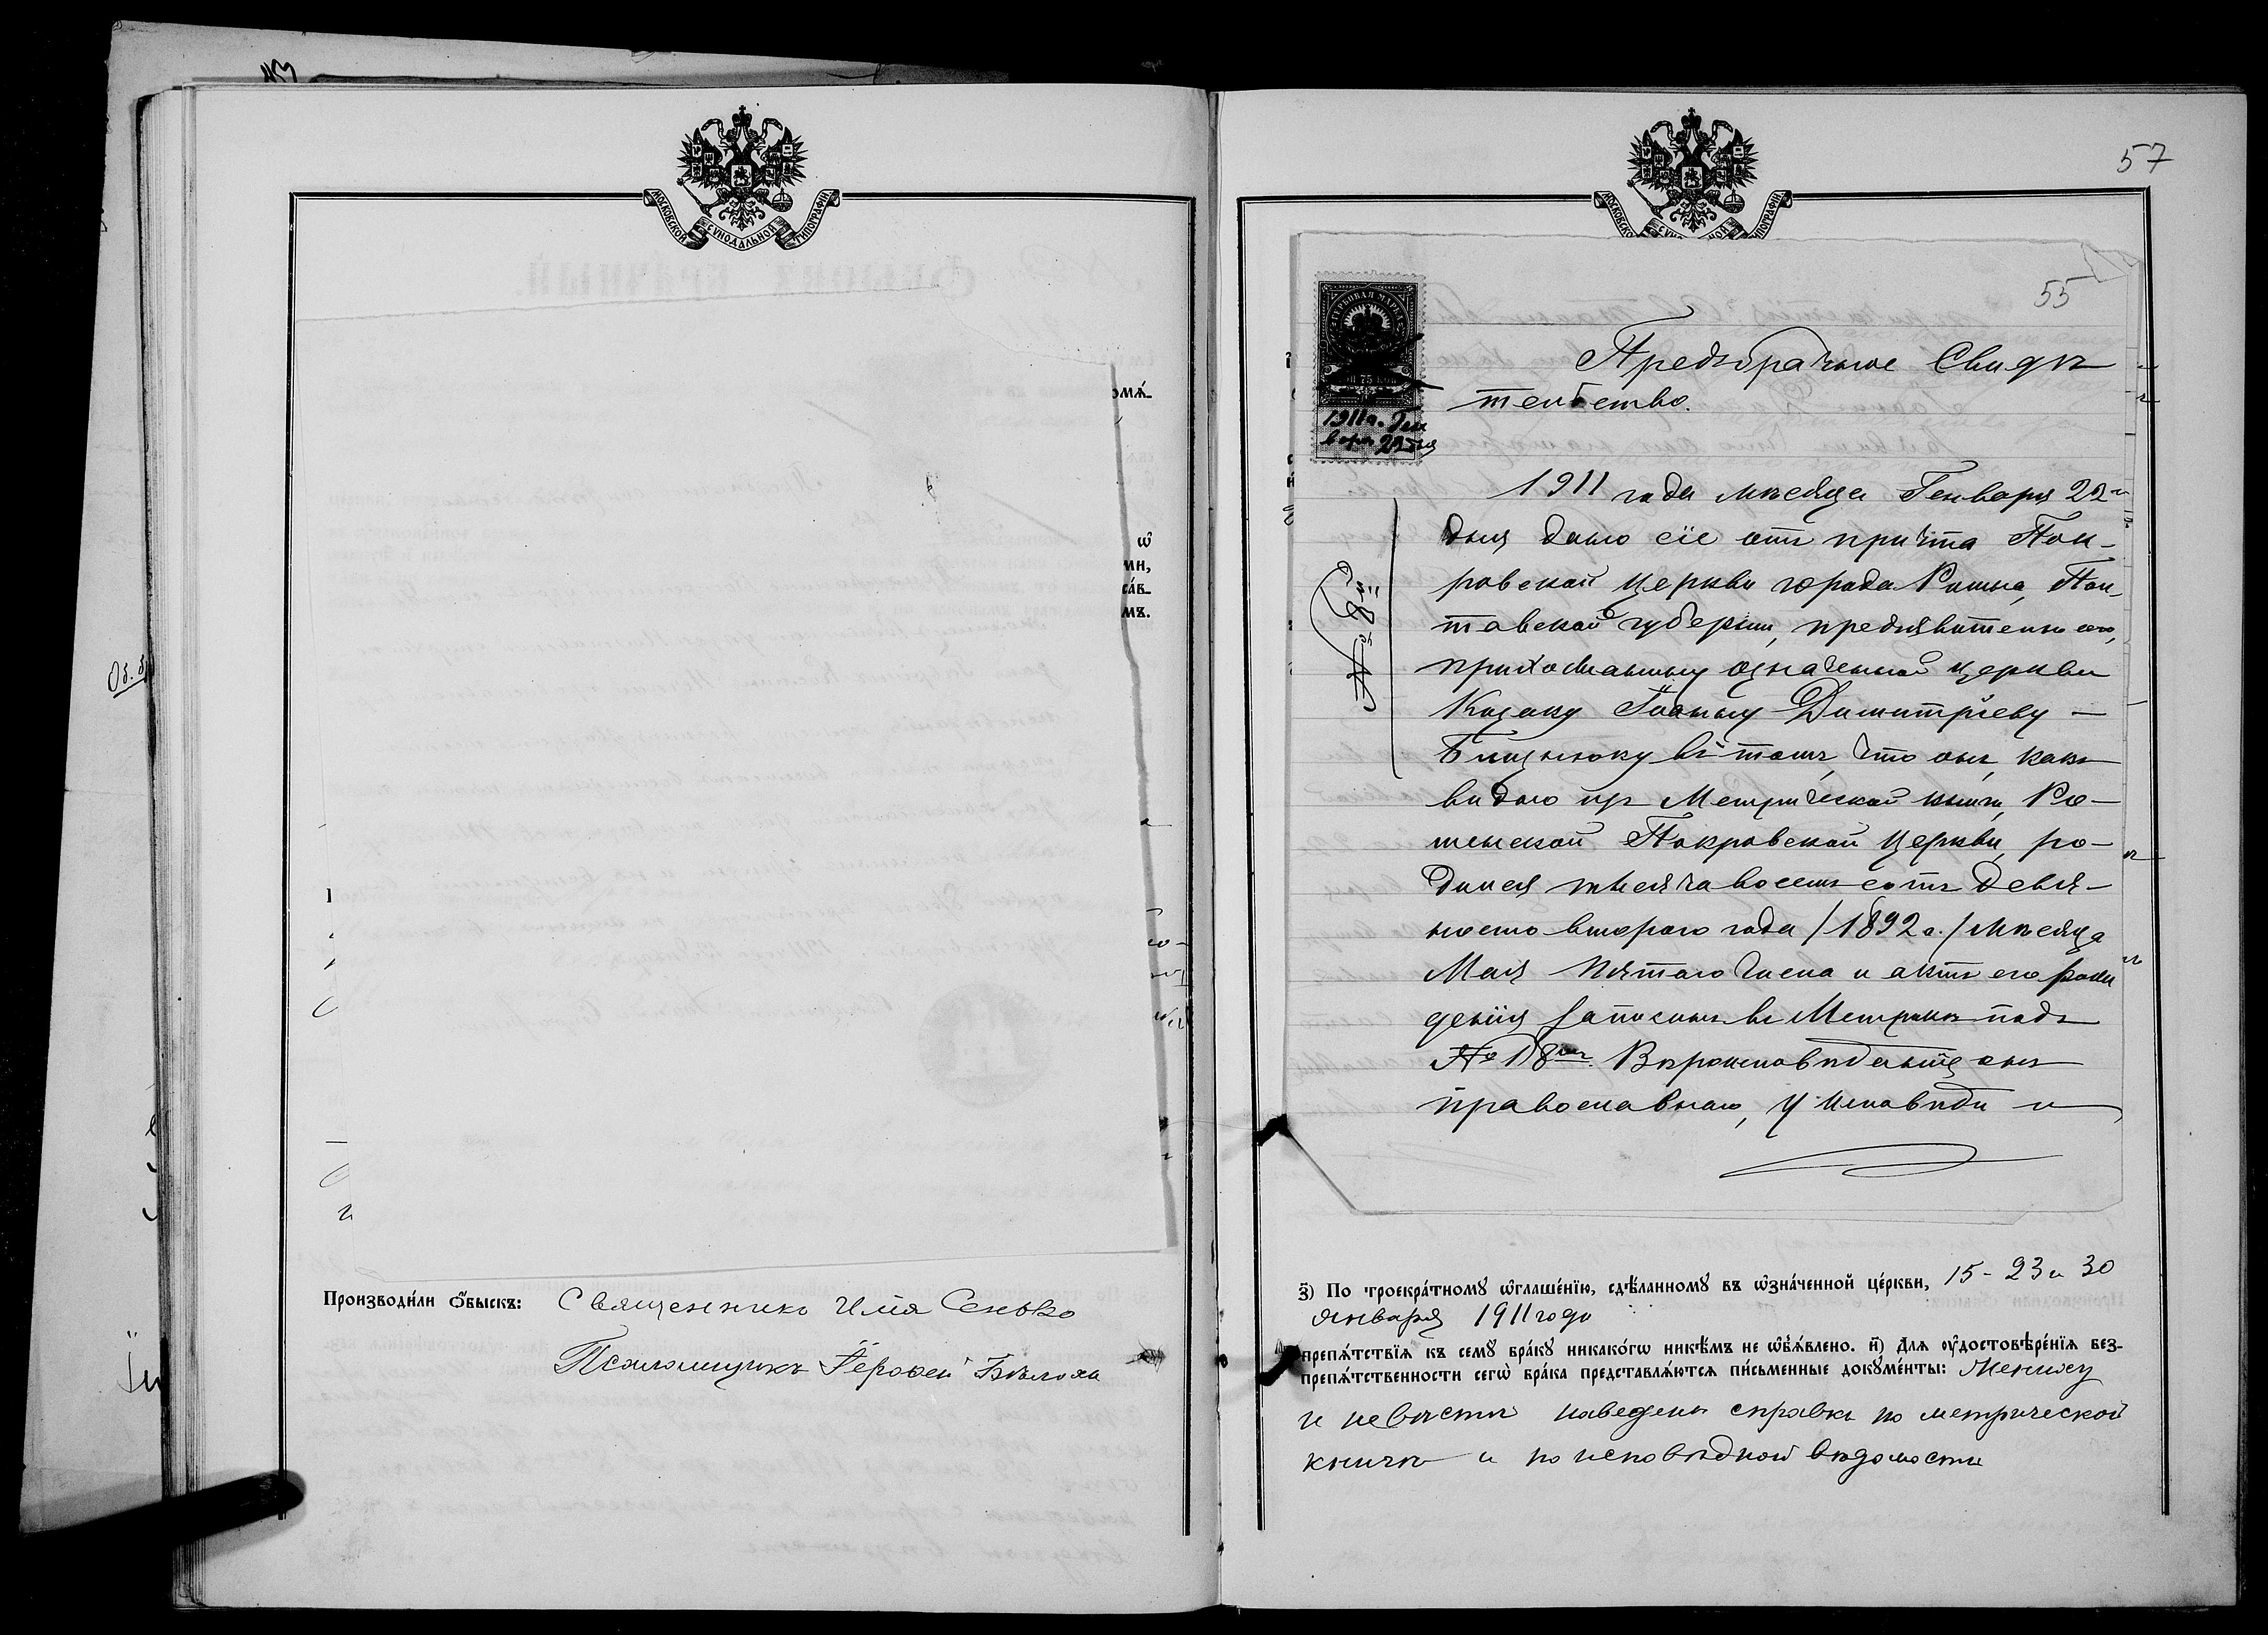 МОСКОВСКОЙ СУНОДАЛЬНОЙ ТИПОГРАФІИ
омѧ́-
ѡ҆
ми,
са́в-
мъ.
Производи́ли ѻ҆́быскъ: Священникъ Илія Сенько
Псаломщикъ Іерофей
57
55
ГЕРБОВАЯ МАРКА
75 КОП
1911 г. Ген
варя 22 дня
Предъбрачное Свидѣ
тельство.
1911 года мѣсяца Генваря 22
дня дано сіе отъ причта Пок-
ровской церкви города Ромна, Пол-
тавской губерніи, предъявителю его,
прихожанину означенной церкви
Козаку Іоанну Димитріеву
Близнюку въ томъ, что онъ, какъ
видно изъ Метрической книги, Ро-
менской Покровской церкви, ро-
дился тысяча восемь сотъ девя-
носто втораго года /1892 г./ мѣсяца
Мая пятаго числа и актъ его рож
денія записанъ въ Метрикѣ подъ
№ 18 мъ. Вѣроисповѣданія онъ
православнаго, у исповѣди и
№ 8й
з҃) По троекра́тномꙋ ѡ҆глаше́нїю, сдѣ́ланномꙋ въ ѡ҆зна́ченной це́ркви, 15 - 23 и 30
января 1911 года
препѧ́тствїѧ къ семꙋ̀ бра́кꙋ никако́гѡ никѣ́мъ не ѡ҆б̾ѧ́влено. и҃) Для ᲂу҆достовѣре́нїѧ без-
препѧ́тственности сегѡ̀ бра́ка представлѧ́ютсѧ пи́сьменные докꙋме́нты: Жениху
и невѣстѣ наведена справка по метрической
книгѣ и по исповѣдной вѣдомости